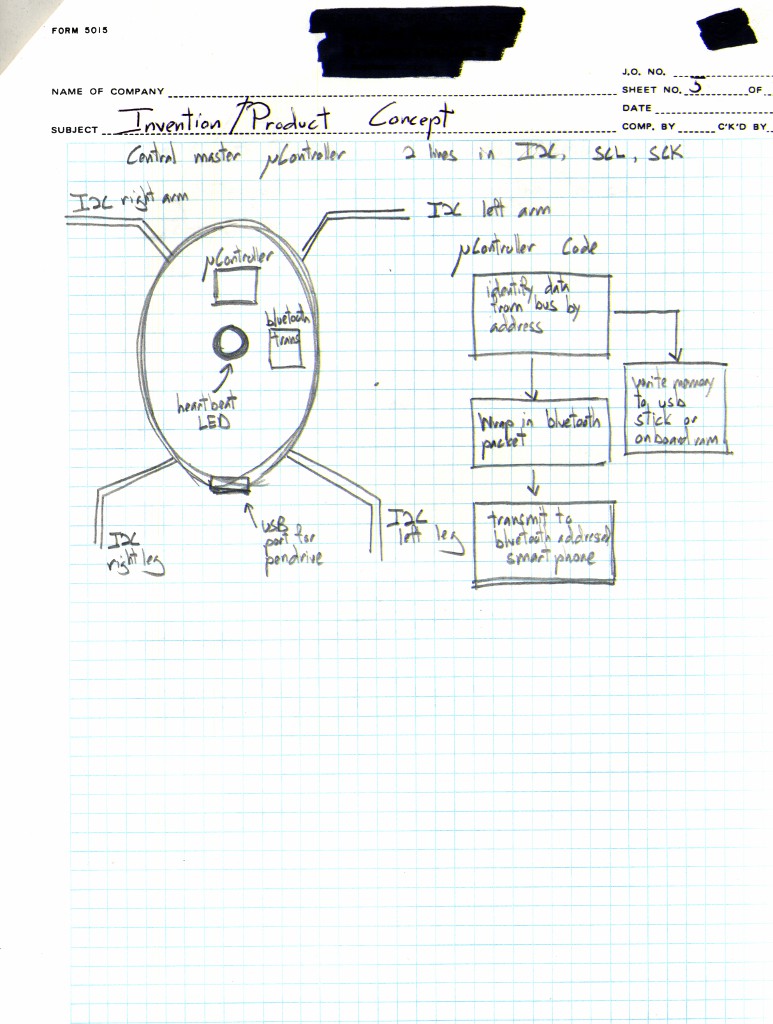 FORM 5015
J.O. NO.
NAME OF COMPANY
SHEET NO. 5 OF
DATE
SUBJECT Invention/Product Concept
COMP. BY C'K'D BY
Central master μController 2 lines in I2C, SCL, SCK
I2C right arm
I2C left arm
μController
bluetooth
trans
heartbeat
LED
USB
port for
pendrive
I2C
right leg
I2C
left leg
μController Code
identify data
from bus by
address
write memory
to usb
stick or
onboard ram
Wrap in bluetooth
packet
transmit to
bluetooth addressed
smart phone